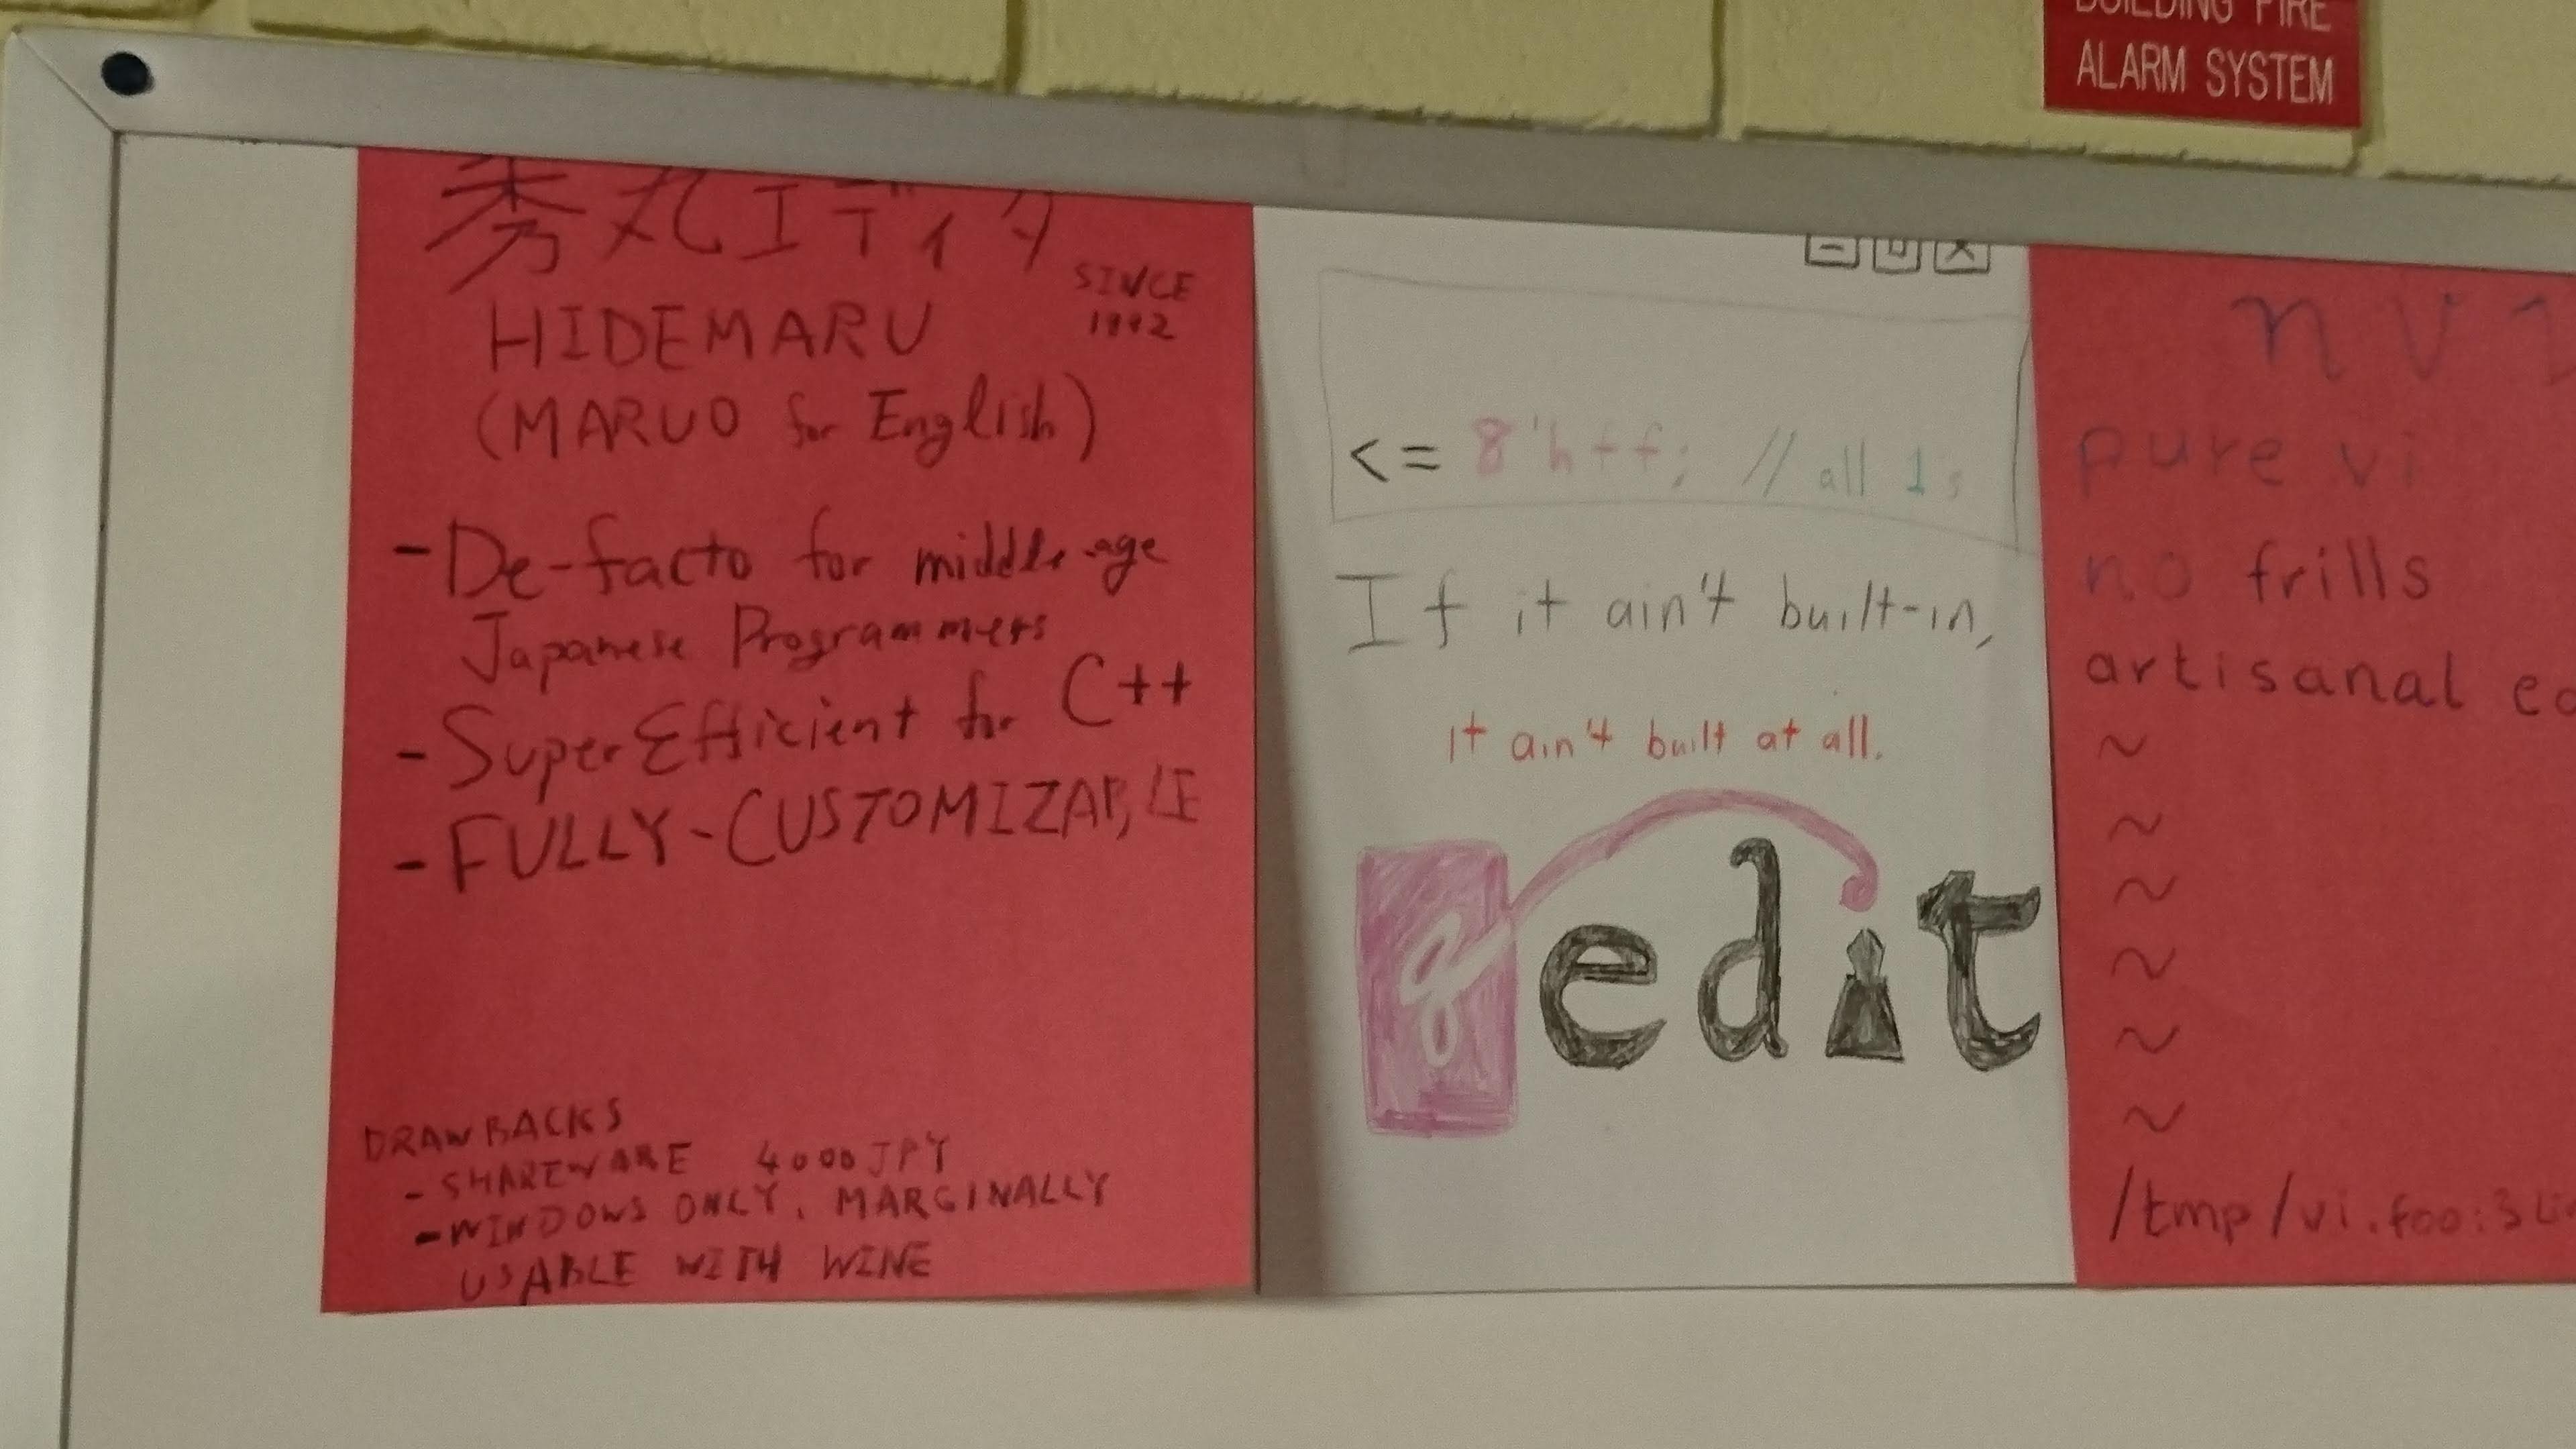 BUILDING FIRE
ALARM SYSTEM
秀丸エディタ
SINCE
1992
HIDEMARU
(MARUO for English)
- De-facto for middle-age
Japanese Programmers
- Super Efficient for C++
- FULLY-CUSTOMIZABLE
DRAWBACKS
- SHAREWARE 4000JPY
- WINDOWS ONLY, MARGINALLY
USABLE WITH WINE
<= 8'hff; // all 1s
If it ain't built-in,
it ain't built at all.
gedit
pure vi
no frills
artisanal
~
~
~
~
~
~
/tmp/vi.foo:3